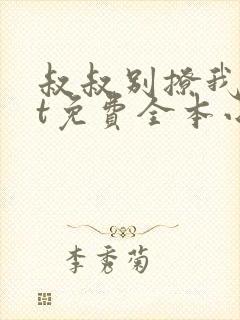 叔叔别撩我
t免費全本小
李秀菊